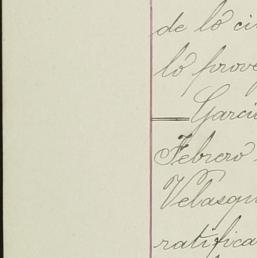 de lo ci
lo prove
Garcia
Febrero
Velasqu
ratifica